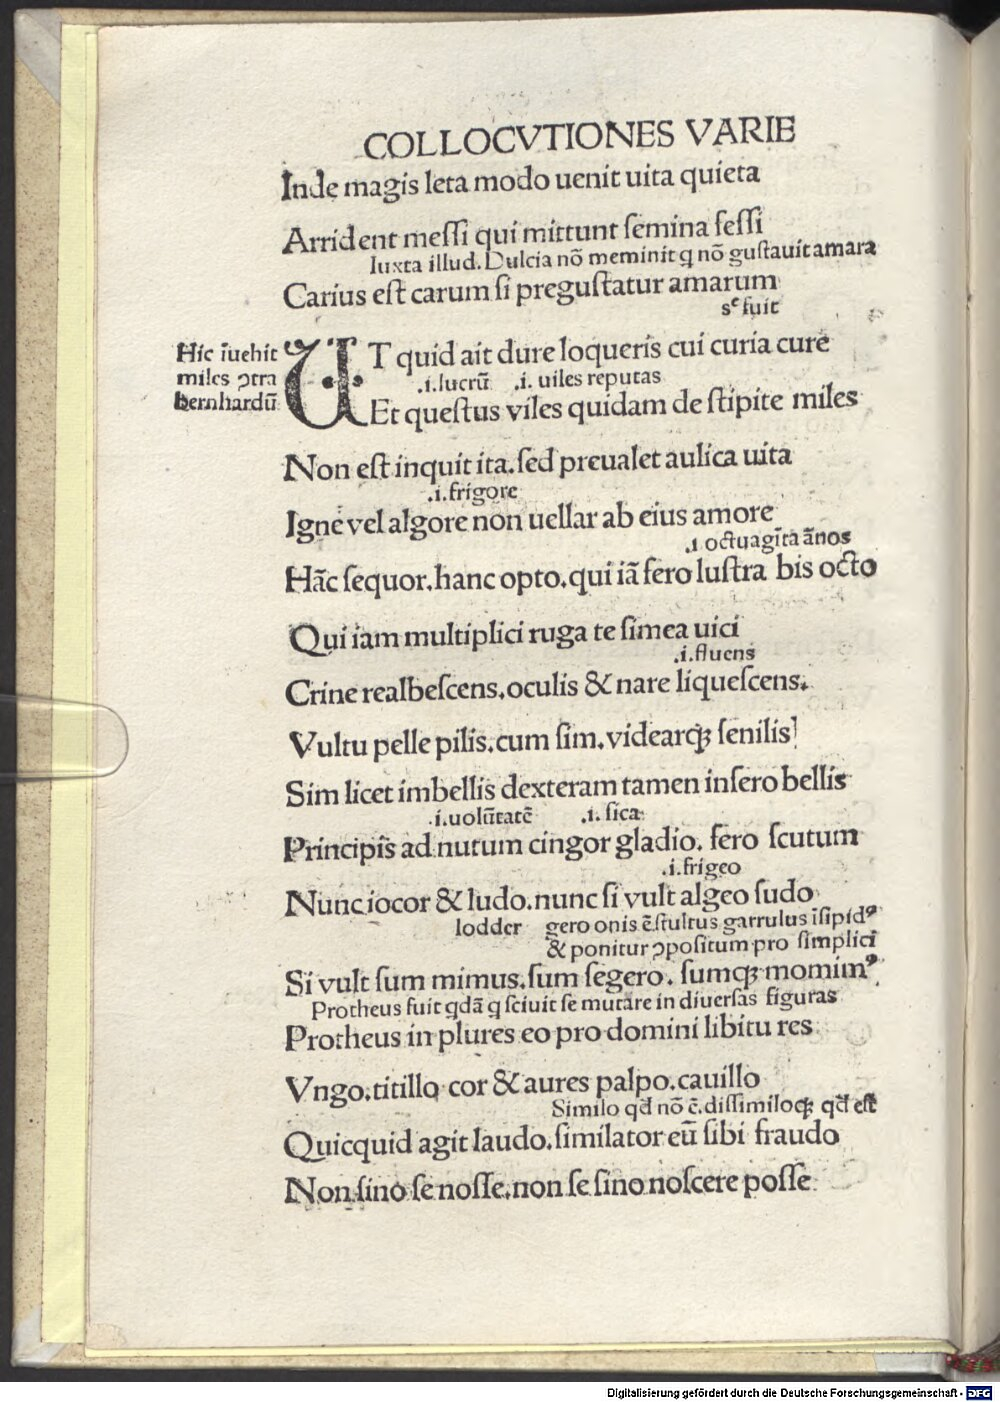 COLLOCVTIONES VARIE
Inde magis leta modo uenit uita quieta
Arrident messi qui mittunt semina fessi
Iuxta illud. Dulcia nõ meminit q nõ gustauit amara
Carius est carum si pregustatur amarum
sͤ fuit
Hic ĩuehit
miles ↄtra
bernhardũ
VT quid ait dure loqueris cui curia cure
.i. lucrũ .i. uiles reputas
Et questus viles quidam de stipite miles
Non est inquit ita. sed preualet aulica uita
.i. frigore
Igne vel algore non uellar ab eius amore
.i octuagĩta ãnos
Hãc sequor. hanc opto. qui iã fero lustra bis octo
Qui iam multiplici ruga te simea uici
.i. fluens
Crine realbescens. oculis & nare liquescens.
Vultu pelle pilis. cum sim. videarqꝫ senilis
Sim licet imbellis dexteram tamen insero bellis
.i. uolũtatẽ .i. sica
Principis ad nutum cingor gladio. fero scutum
.i. frigeo
Nunc iocor & ludo. nunc si vult algeo sudo
lodder gero onis ẽ. stultus garrulus ĩsipidꝰ
& ponitur ↄpositum pro simplici
Si vult sum mimus. sum segero. sumqꝫ momimꝰ
Protheus fuit qdã q sciuit se mutare in diuersas figuras
Protheus in plures eo pro domini libitu res
Vngo. titillo cor & aures palpo. cauillo
Similo qđ nõ ẽ. dissimiloqꝫ qđ est
Quicquid agit laudo. similator eũ sibi fraudo
Non sino se nosse. non se sino noscere posse
Digitalisierung gefördert durch die Deutsche Forschungsgemeinschaft - DFG